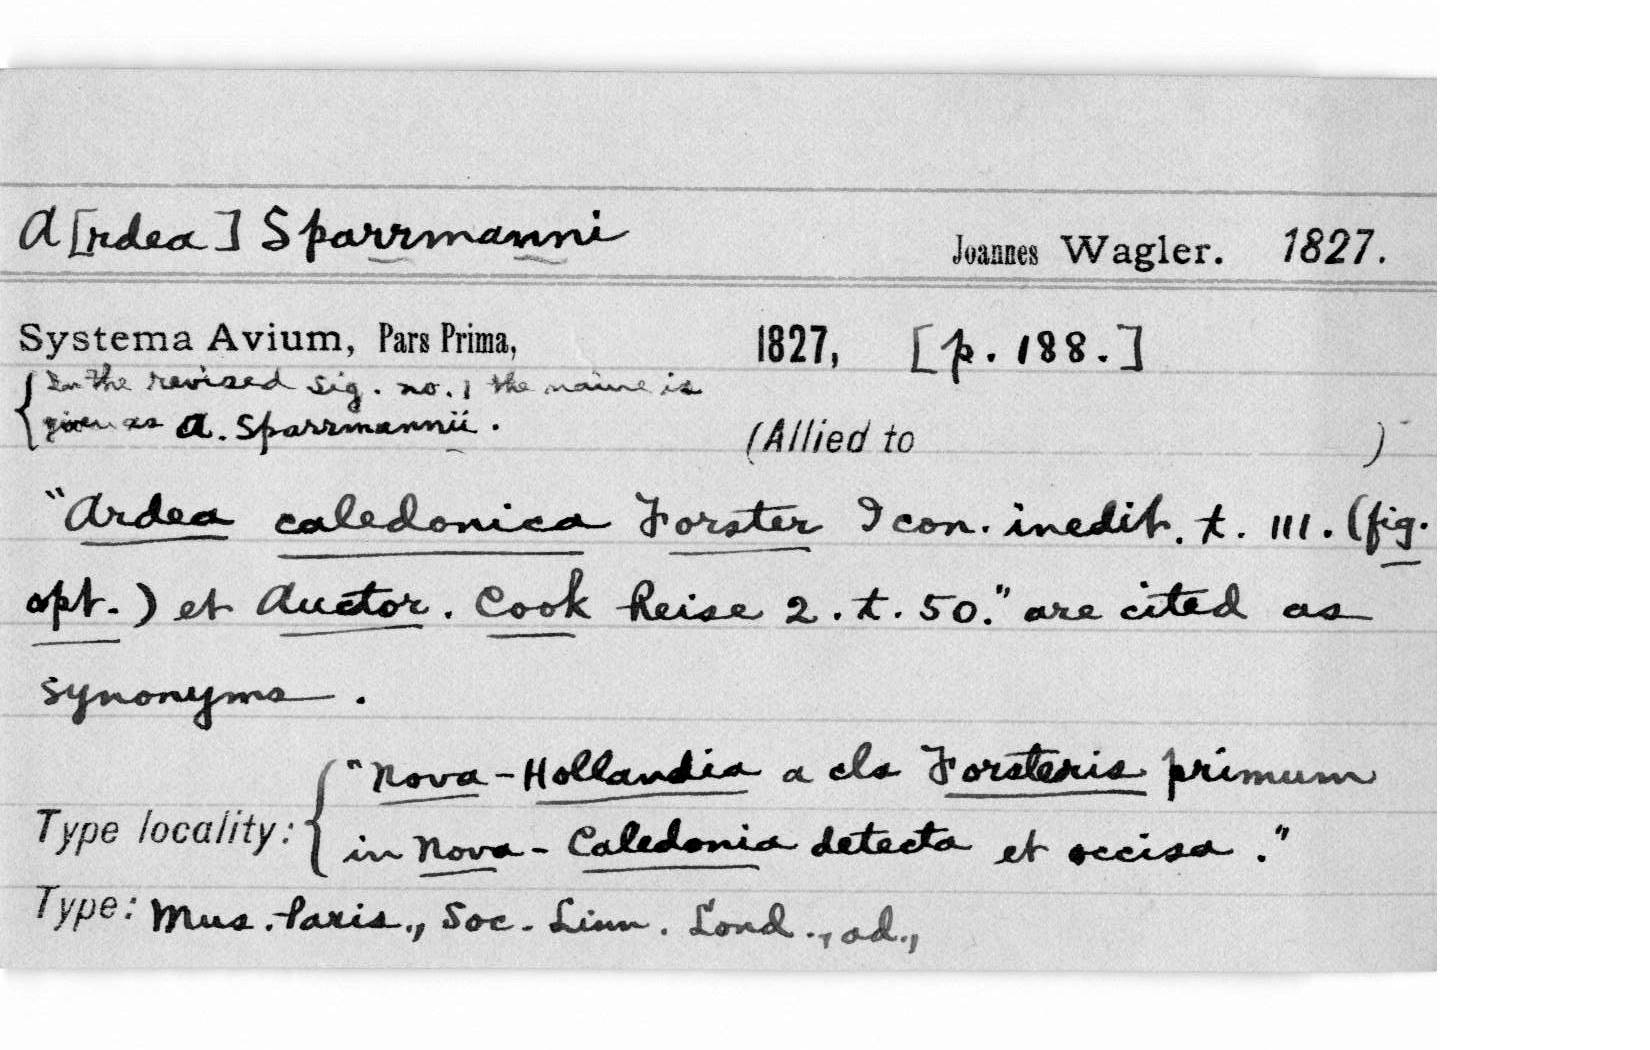 A[rdea] Sparrmanni Joannes Wagler. 1827.
Systema Avium, Pars Prima, 1827, [p. 188.]
{In the revised sig. no. 1 the name is
given as A. Sparrmannii.
(Allied to )
"Ardea caledonica Forster Icon. inedit. t. 111. (fig.
opt.) et Auctor. Cook Reise 2. t. 50." are cited as
synonyms.
"Nova-Hollandia a cls Forsteris primum
Type locality: { in Nova-Caledonia detecta et occisa."
Type: Mus. Paris., Soc. Linn. Lond., ad.,